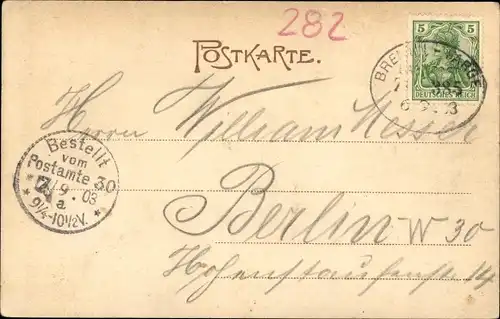 282
5 5
DEUTSCHES REICH
POSTKARTE.
BREMEN
6 9 03
Herrn William Messer
Bestellt
vom
Postamte 30
7/9.03
a
9¼-10½V.
Berlin W 30
Hohenstaufenstr 14